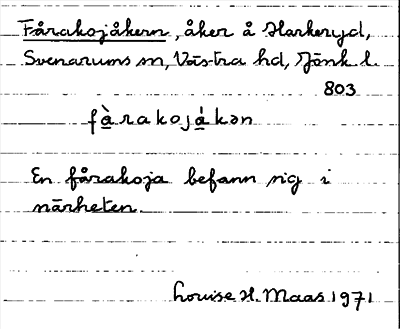 Fårakojåkern, åker å Harkeryd,
Svenarums sn, Västra hd, Jönk l.
803
fàrakojákən
En fårakoja befann sig i
närheten.
Louise H. Maas 1971